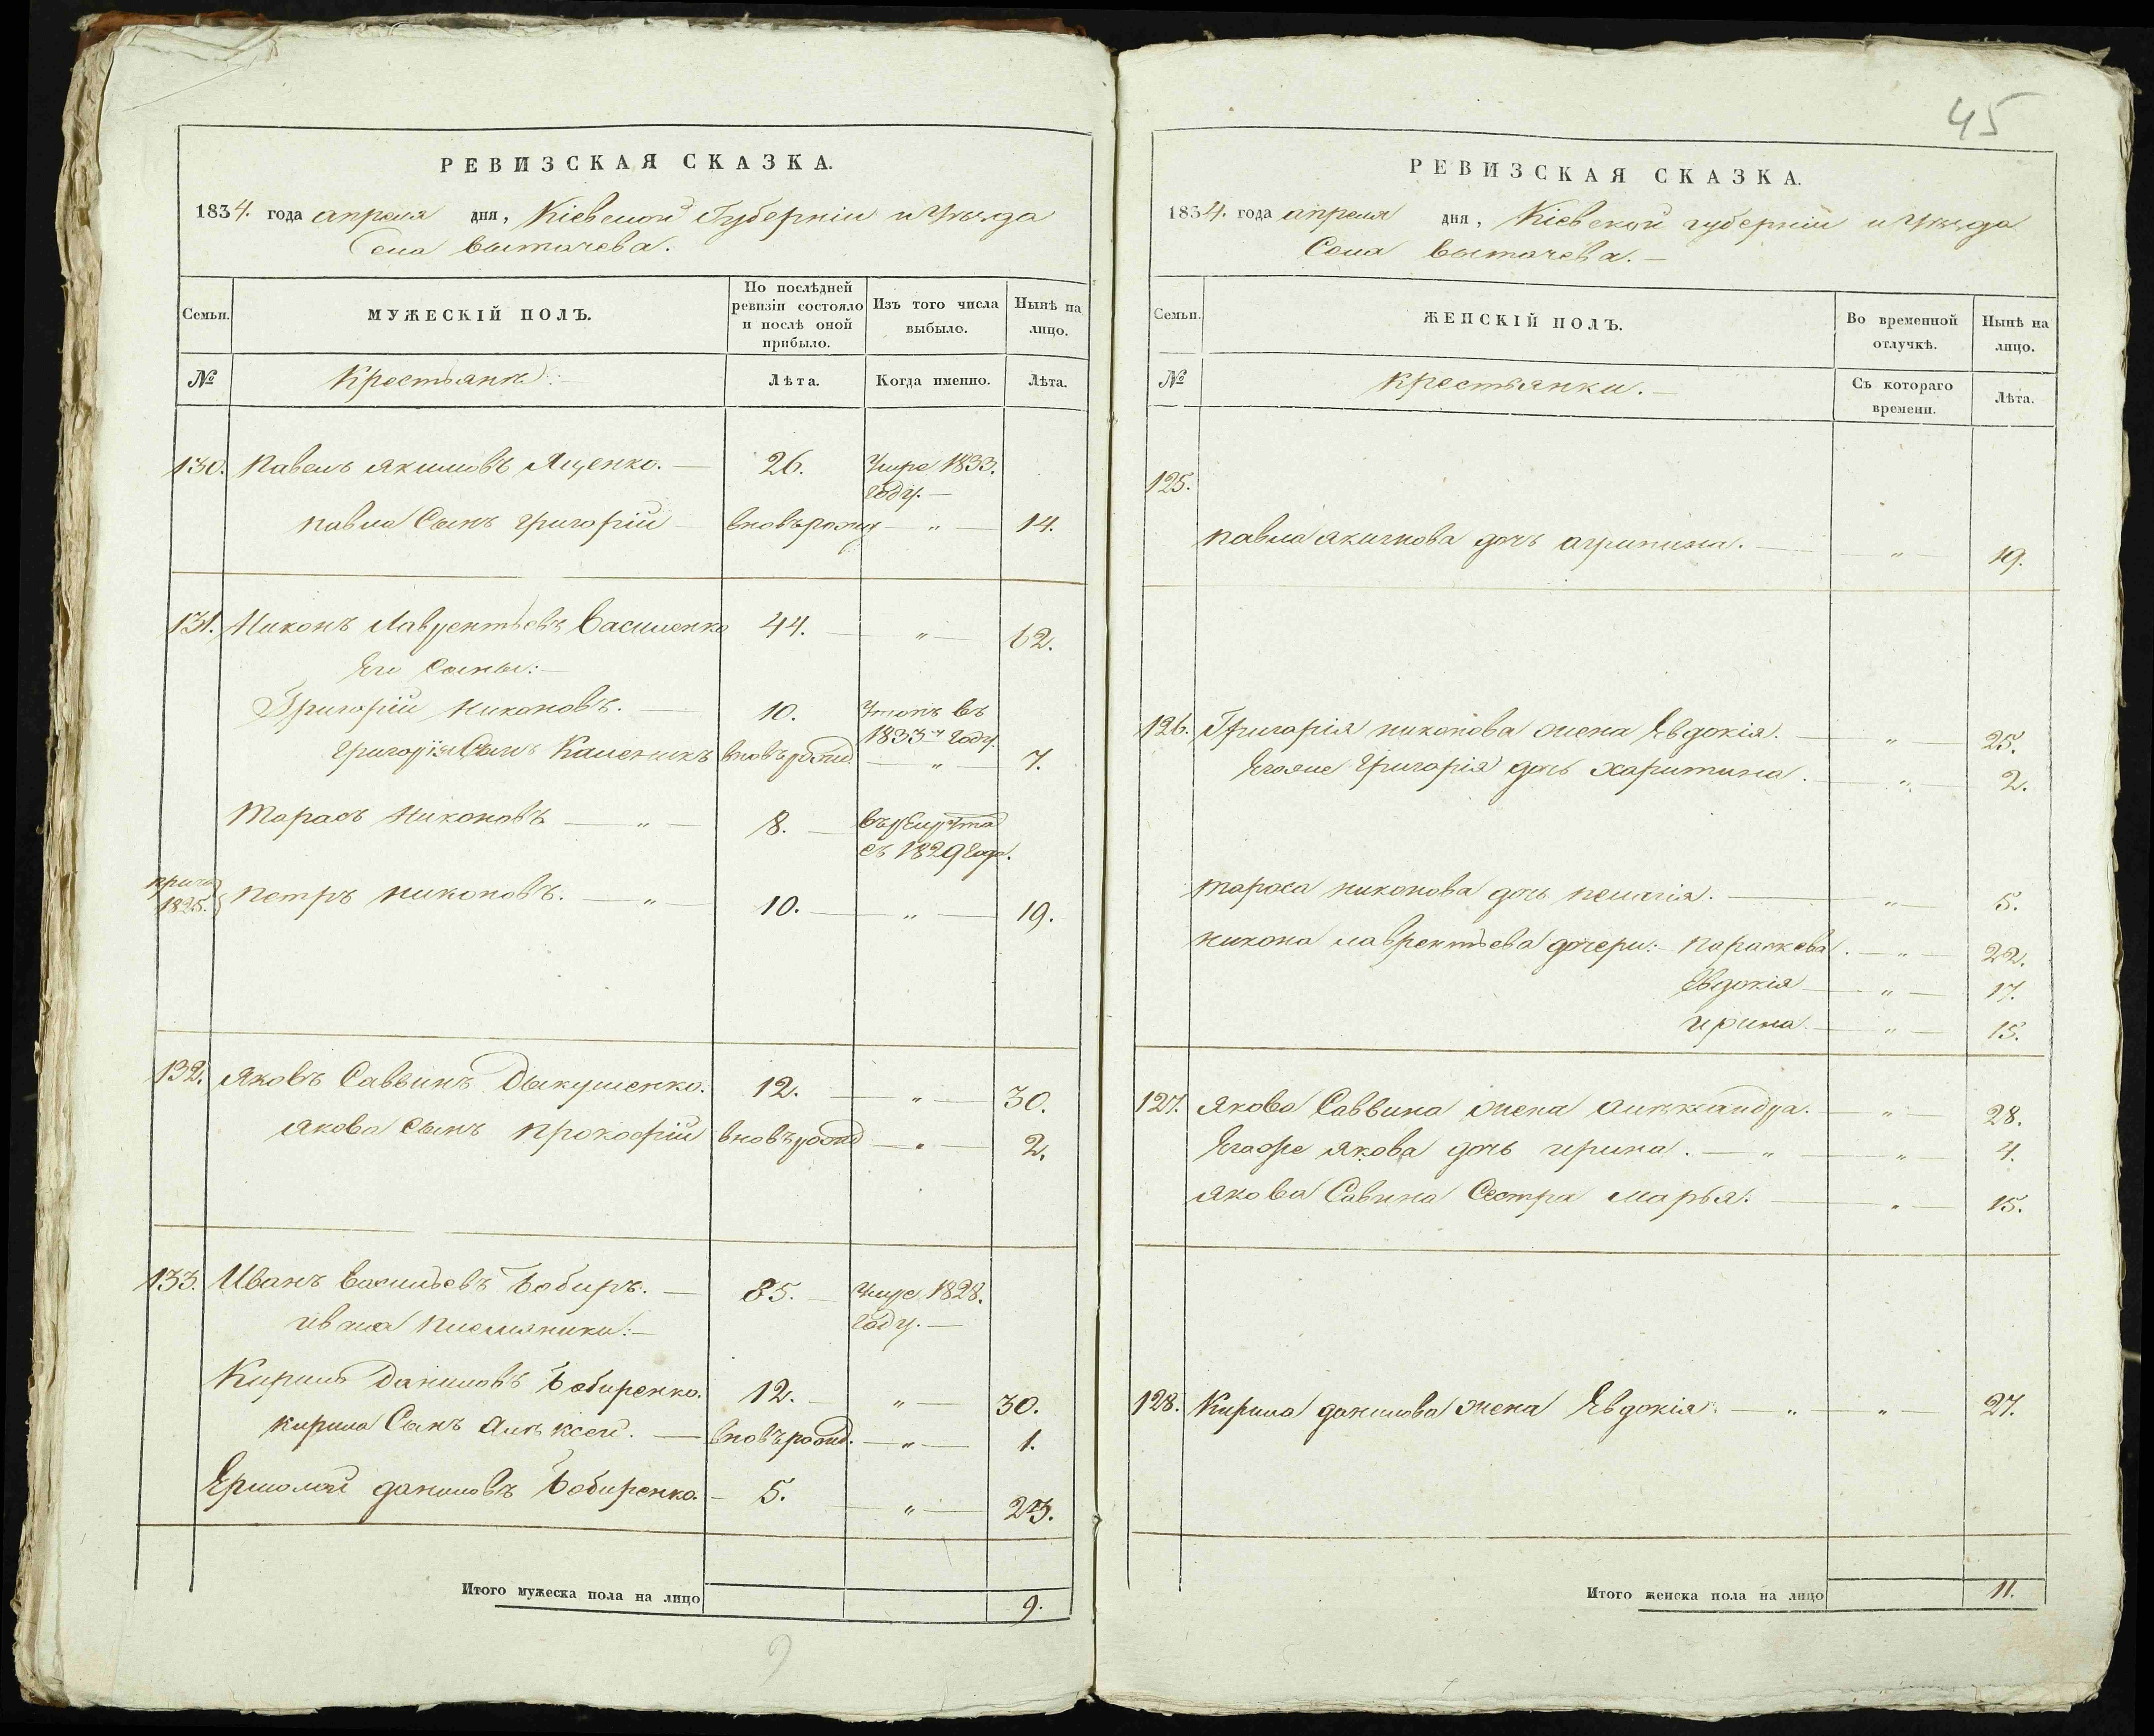 РЕВИЗСКАЯ СКАЗКА.
1834. года апреля дня, Кіевской Губерніи и Уѣзда
Села Вытачева.
Семьи.
МУЖЕСКІЙ ПОЛЪ.
По послѣдней ревизіи состояло и послѣ оной прибыло.
Изъ того числа выбыло.
Нынѣ на лицо.
№
Крестьяне:
Лѣта.
Когда именно.
Лѣта.
130. Павелъ Якимовъ Яценко. — 26. Умре 1833.
Году. —
Павла Сынъ Григорій — вновь рожд — „ — 14.
131. Никонъ Лаврентьевъ Василенко 44. — „ — 62.
Его Сыны: —
Григорій Никоновъ. — 10. Утопъ въ
1833м Году.
Григорія Сынъ Каленикъ вновь рожд. — „ — 7.
Тарасъ Никоновъ — „ — 8. — въ рекрута
съ 1829 Года.
1825. Петръ Никоновъ. — „ — 10. — „ — 19.
132. Яковъ Саввинъ Дыкушенко. 12. — „ — 30.
Якова Сынъ Прокофій вновь рожд — „ — 2.
133. Иванъ Васильевъ Бобиръ. — 85. — Умре 1828.
Году. —
Ивана племяники: —
Кирилъ Даниловъ Бобиренко. 12. — „ — 30.
Кирила Сынъ Алексей. — вновь рожд. — „ — 1.
Ермолай Даниловъ Бобиренко. — 5. — „ — 23.
Итого мужеска пола на лицо 9.
9
45
РЕВИЗСКАЯ СКАЗКА.
1834. года апреля дня, Кіевской губерніи и Уѣзда
Села Вытачева. —
Семьи.
ЖЕНСКІЙ ПОЛЪ.
Во временной отлучкѣ.
Нынѣ на лицо.
№
Крестьянки. —
Съ котораго времени.
Лѣта.
125.
Павла Якимова дочь агрипина. — „ — 19.
126. Григорія Никонова жена Евдокія. — „ — 25.
Егоже Григорія дочь Харитина. — „ — 2.
Тараса Никонова дочь Пелагія. — „ — 5.
Никона лаврентьева дочери: Параскева. — „ — 22.
Евдокія — „ — 17.
Ирина. — „ — 15.
127. Якова Саввина жена Александра. — „ — 28.
Егоже Якова дочь Ирина. — „ — „ — 4.
Якова Савина Сестра Марья. — „ — 15.
128. Кирила данилова жена Евдокія. — „ — „ — 27.
Итого женска пола на лицо 11.